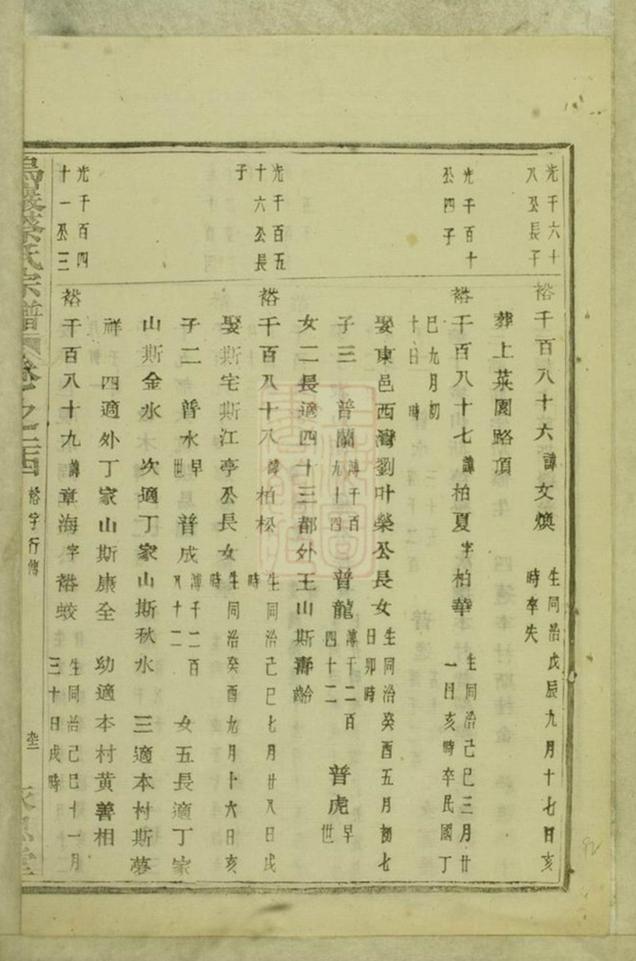 光千六十
八公長子
裕千百八十六諱文煥
生同治戊辰九月十七日亥
時卒失
葬上菜園路頂
光千百十
公四子
裕千百八十七諱柏夏字柏華
生同治己巳三月廿
一日亥時卒民國丁
巳九月初
十日時
娶東邑西灣劉叶榮公長女
生同治癸酉五月初七
日卯時
子三 普蘭
溥千百
九十四
普龍
溥千二百
四十二
普虎
早
世
女二長適四十三都外王山斯壽齡
光千百五
十六公長
子
裕千百八十八諱柏松
生同治己巳七月廿八日戌
時
娶斯宅斯江亭公長女
生同治癸酉九月十六日亥
時
子二 普水
早
世
普成
溥千二百
八十二
女五長適丁家
山斯金水 次適丁家山斯秋水 三適本村斯夢
祥 四適外丁家山斯康全 幼適本村黄善相
光千百四
十一公三
裕千百八十九諱章海字裕蛟
生同治己巳十一月
三十日戌時
蔡氏宗譜卷之四
裕字行傳